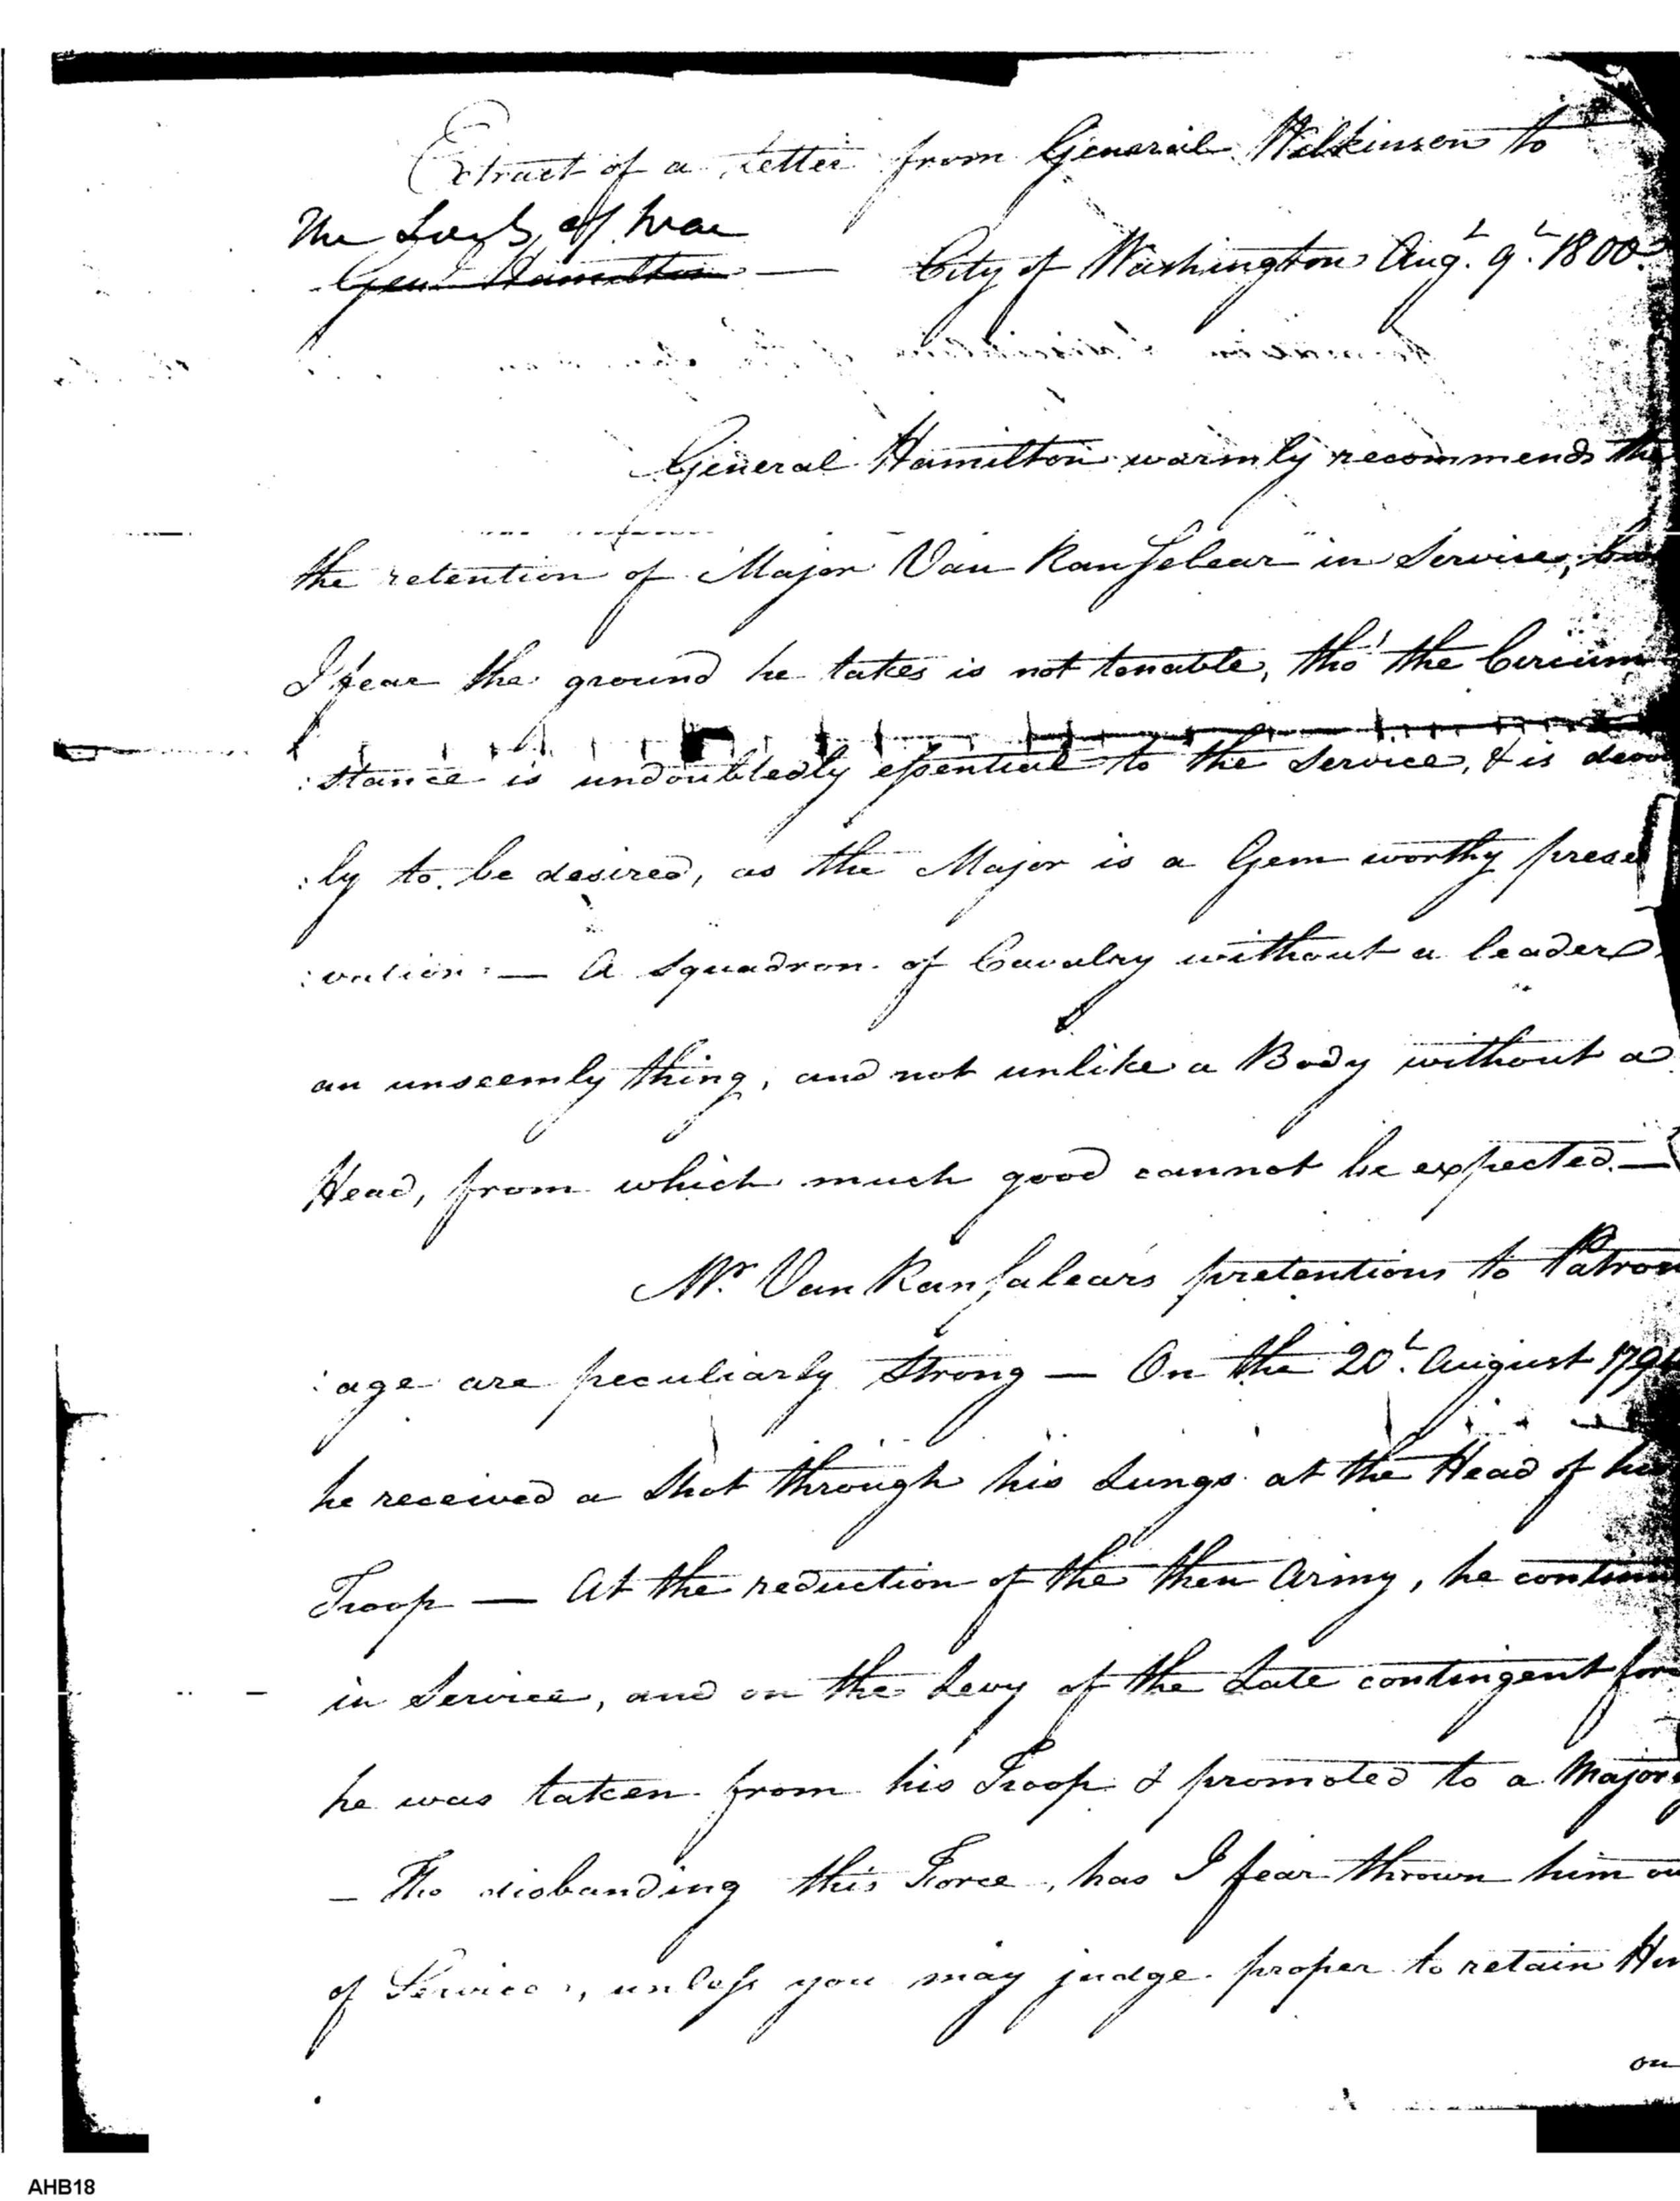 Extract of a Letter from General Wilkinson to
the Secy of War
Genl Hamilton — City of Washington Augt. 9t. 1800.
General Hamilton warmly recommends the
the retention of Major Van Ranselear in Service, but
I fear the ground he takes is not tenable, tho' the Circum
:stance is undoubtedly essential to the Service, & is devou
:ly to be desired, as the Major is a Gem worthy preser
:vation. — A Squadron of Cavalry without a leader
an unseemly thing, and not unlike a Body without a
Head, from which much good cannot be expected. —
Mr. Van Ransalears pretentions to Patron
:age are peculiarly Strong — On the 20t. August 1794
he received a Shot through his Lungs at the Head of his
Troop — At the reduction of the then Army, he continu
in Service, and on the Levy of the Late contingent for
he was taken from his Troop & promoted to a Major
— The disbanding this Force, has I fear thrown him ou
of Service, unless you may judge proper to retain Him
on
AHB18